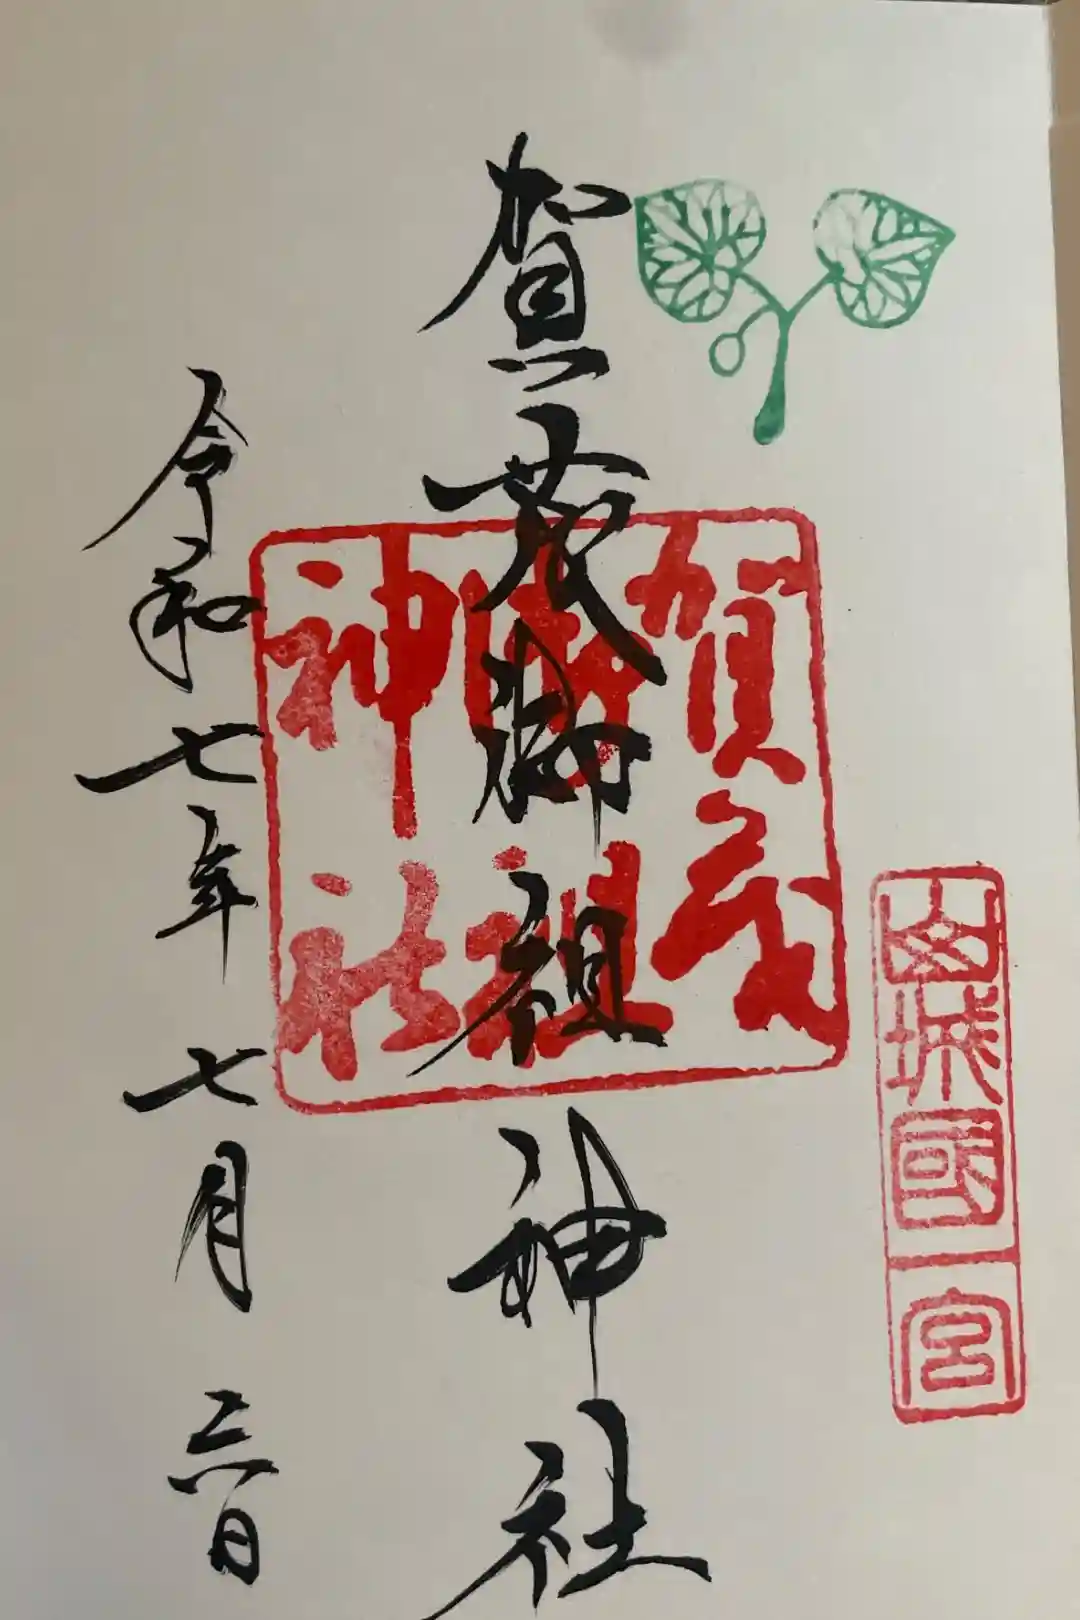 山城國
一宮
賀茂御祖神社
賀茂
御祖
神社
令和七年七月六日